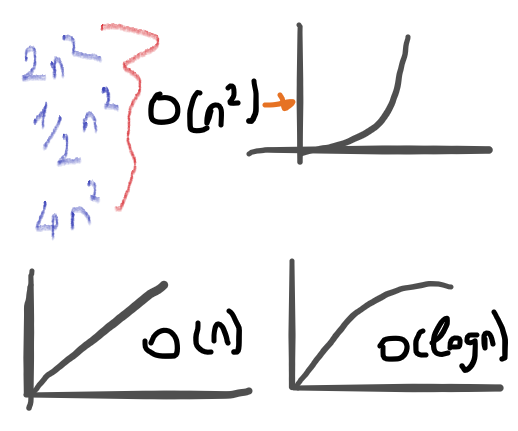 2n²
1/2n²
4n²
O(n²)
O(n)
O(logn)